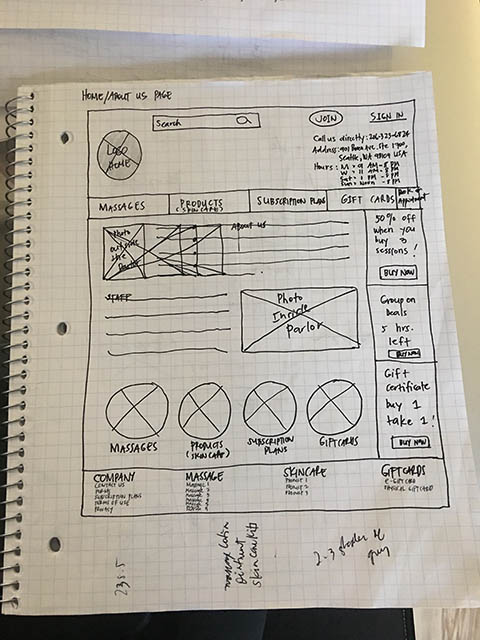 HOME/ABOUT US PAGE
Search
JOIN
SIGN IN
LOGO
HOME
Call us directly: 206-323-6824
Seattle, WA 98104 USA
Hours: M - 9 AM - 8 PM
MASSAGES
PRODUCTS
(SKINCARE)
SUBSCRIPTION PLANS
GIFT CARDS
Book an
Appointment
Photo
outside
the
Parlor
ABOUT US
50% off
when you
buy 3
sessions!
BUY NOW
STAFF
Photo
Inside
Parlor
Groupon
Deals
5 hrs.
left
BUY NOW
Gift
certificate
buy 1
take 1!
BUY NOW
MASSAGES
PRODUCTS
(SKINCARE)
SUBSCRIPTION
PLANS
GIFTCARDS
COMPANY
CONTACT US
SUBSCRIPTION PLANS
TERMS OF USE
PRIVACY
MASSAGE
MASSAGE 1
MASSAGE 2
MASSAGE 3
MASSAGE 4
SKINCARE
PRODUCT 1
PRODUCT 2
PRODUCT 3
GIFTCARDS
E-GIFTCARD
PHYSICAL GIFTCARD
238.5
massage lotion
ointment
skin care kits
2-3 shades of
grey